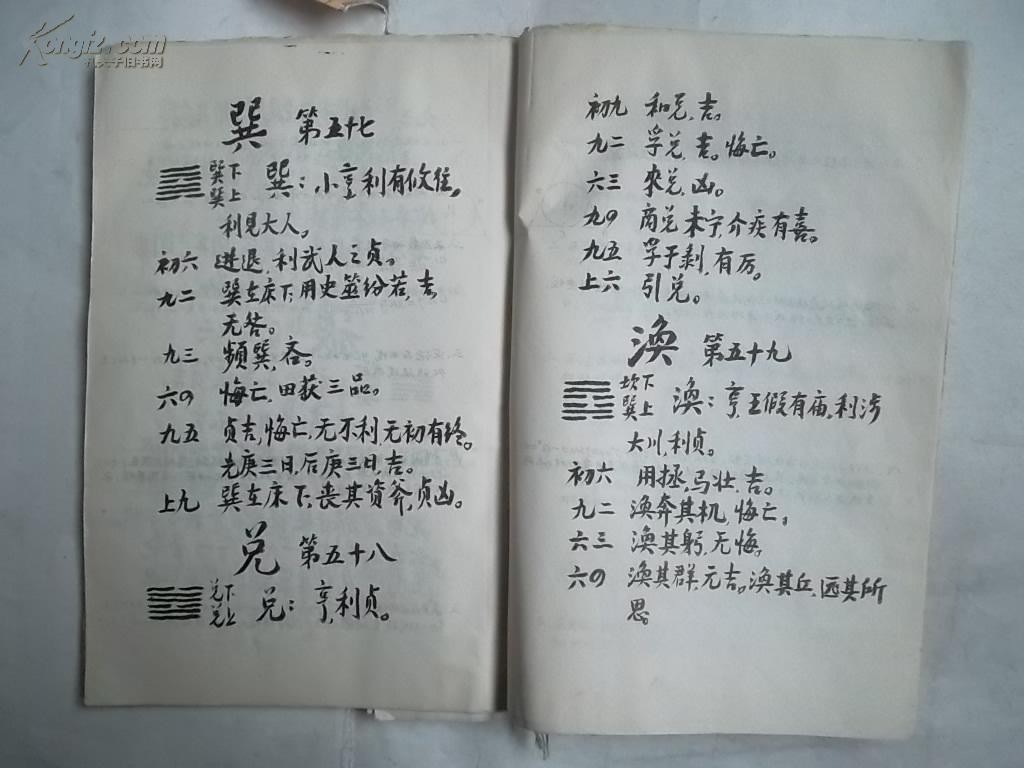 Kongfz.com
孔夫子旧书网
巽 第五十七
巽下
巽上
巽：小亨利有攸往。
利见大人。
初六 进退，利武人之贞。
九二 巽在床下，用史巫纷若，吉，
无咎。
九三 频巽，吝。
六四 悔亡，田获三品。
九五 贞吉，悔亡，无不利，无初有终。
先庚三日，后庚三日，吉。
上九 巽在床下，丧其资斧，贞凶。
兑 第五十八
兑下
兑上
兑：亨，利贞。
初九 和兑，吉。
九二 孚兑，吉。悔亡。
六三 来兑，凶。
九四 商兑未宁，介疾有喜。
九五 孚于剥，有厉。
上六 引兑。
涣 第五十九
坎下
巽上
涣：亨，王假有庙，利涉
大川，利贞。
初六 用拯，马壮，吉。
九二 涣奔其机，悔亡，
六三 涣其躬，无悔。
六四 涣其群，元吉。涣其丘，匪其所
思。